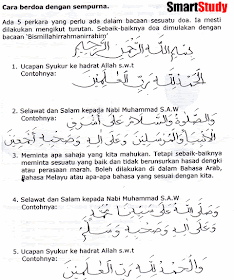 SmartStudy
Cara berdoa dengan sempurna.
Ada 5 perkara yang perlu ada dalam bacaan sesuatu doa. Ia mesti
dilakukan mengikut turutan. Sebaiknya doa dimulakan dengan
bacaan 'Bismillahirrahmanirrahim'
بسم الله الرحمن الرحيم
1. Ucapan Syukur ke hadrat Allah s.w.t
Contohnya:
الحمد لله رب العالمين
2. Selawat dan Salam kepada Nabi Muhammad S.A.W
Contohnya:
والمرسلين وعلى اله وصحبه اجمعين
3. Meminta apa sahaja yang kita mahukan. Tetapi sebaik-baiknya
meminta sesuatu yang baik dan tidak berunsurkan hasad dengki
atau perasaan marah. Boleh dilakukan di dalam Bahasa Arab,
Bahasa Melayu atau apa-apa bahasa yang sesuai dengan kita.
4. Selawat dan Salam kepada Nabi Muhammad S.A.W
Contohnya:
وصلى الله على سيدنا محمد
وعلى اله وصحبه وسلم
5. Ucapan Syukur ke hadrat Allah s.w.t
Contohnya:
والحمد لله رب العالمين